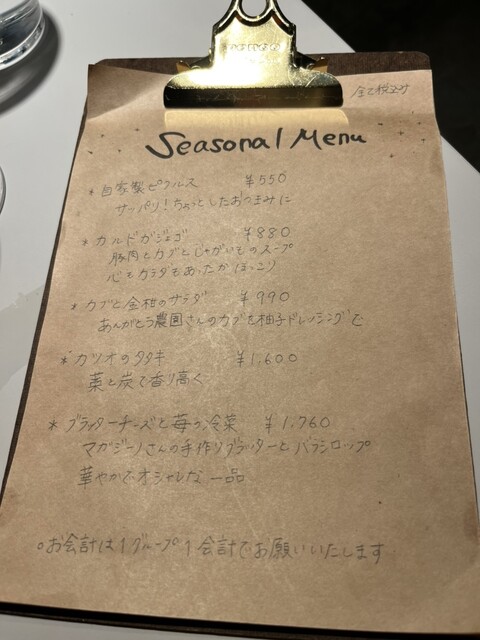 全て税込み
Seasonal Menu
* 自家製ピクルス ¥550
サッパリ!ちょっとしたおつまみに
* カルドガジェゴ ¥880
豚肉とカブとじゃがいものスープ
心もカラダもあったかほっこり
* カブと金柑のサラダ ¥990
ありがとう農園さんのカブを柚子ドレッシングで
* カツオのタタキ ¥1,600
藁と炭で香り高く
* ブラッターチーズと苺の冷菜 ¥1,760
マガジーノさんの手作りブラッターと バラシロップ
華やかでオシャレな一品
○お会計は1グループ1会計でお願いいたします